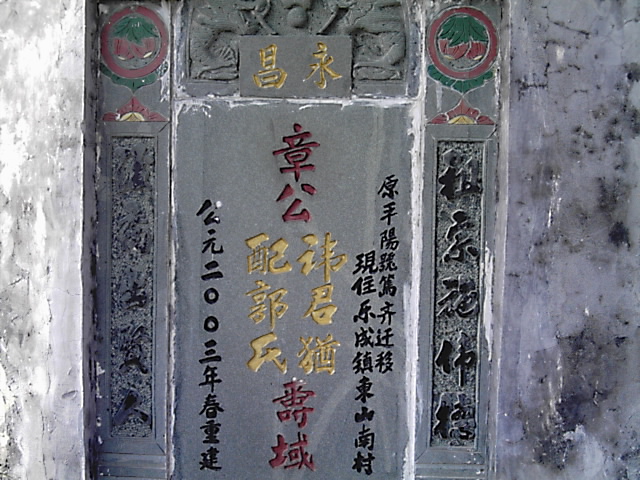 永昌
祖宗施伟德
原平陽跪篇齐迁移
現住乐成鎮東山南村
章公
諱君猶
配郭氏
壽域
公元二〇〇三年春重建